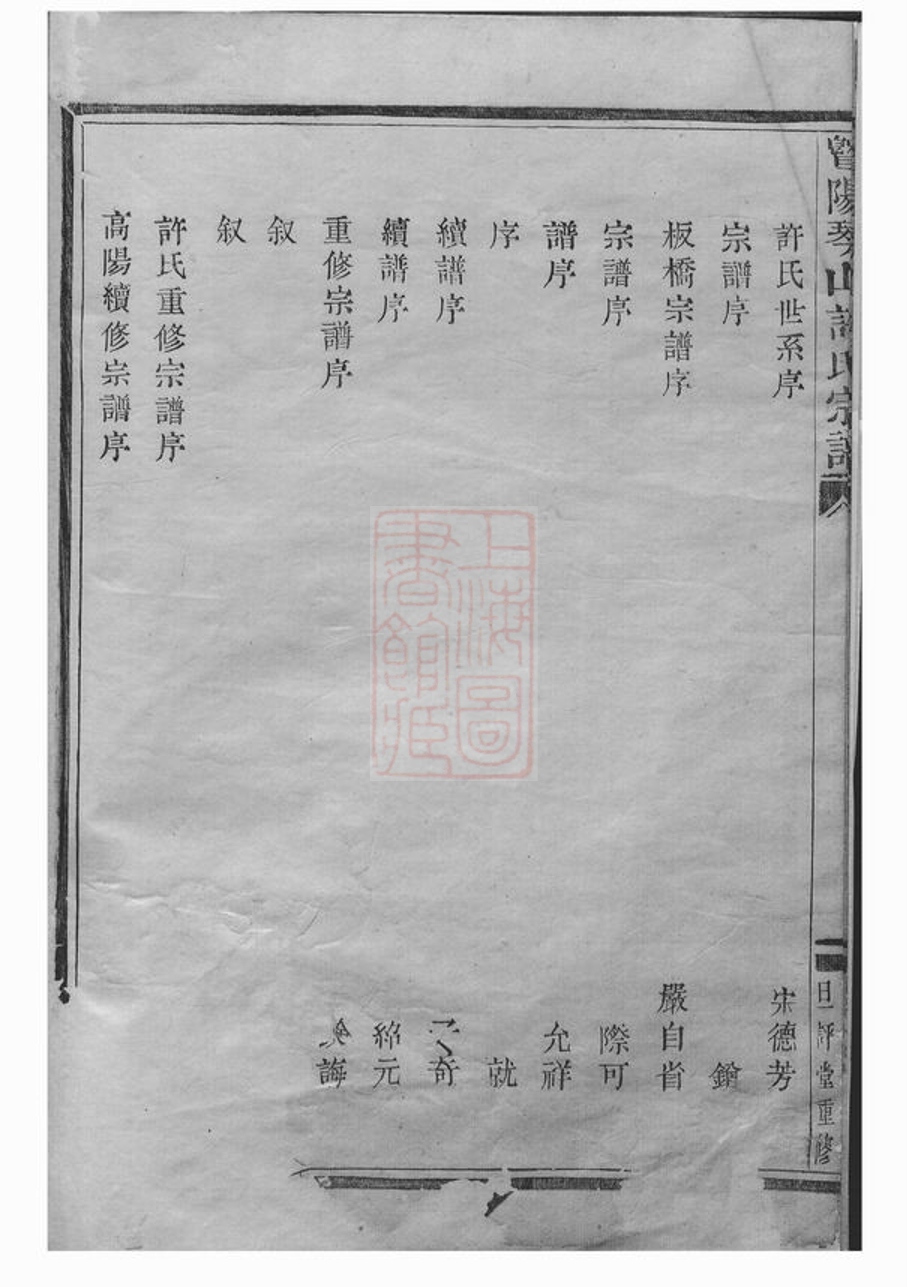 暨陽琴山許氏宗譜
許氏世系序 宋德芳
宗譜序 鑰
板橋宗譜序 嚴自省
宗譜序 際可
譜序 允祥
序 就
續譜序 奇
續譜序 綿元
重修宗譜序 誨
叙
叙
許氏重修宗譜序
高陽續修宗譜序
旦評堂重修
上海圖書館藏